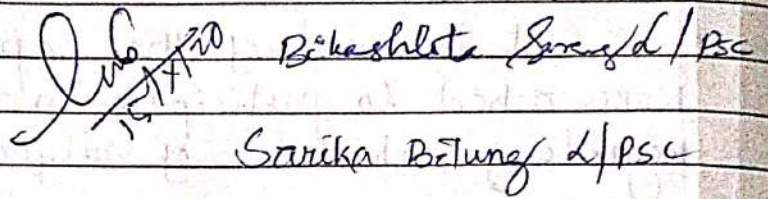 15/X/20 Bikashlata Soreng L/PSC
Sarika Bilung L/PSC